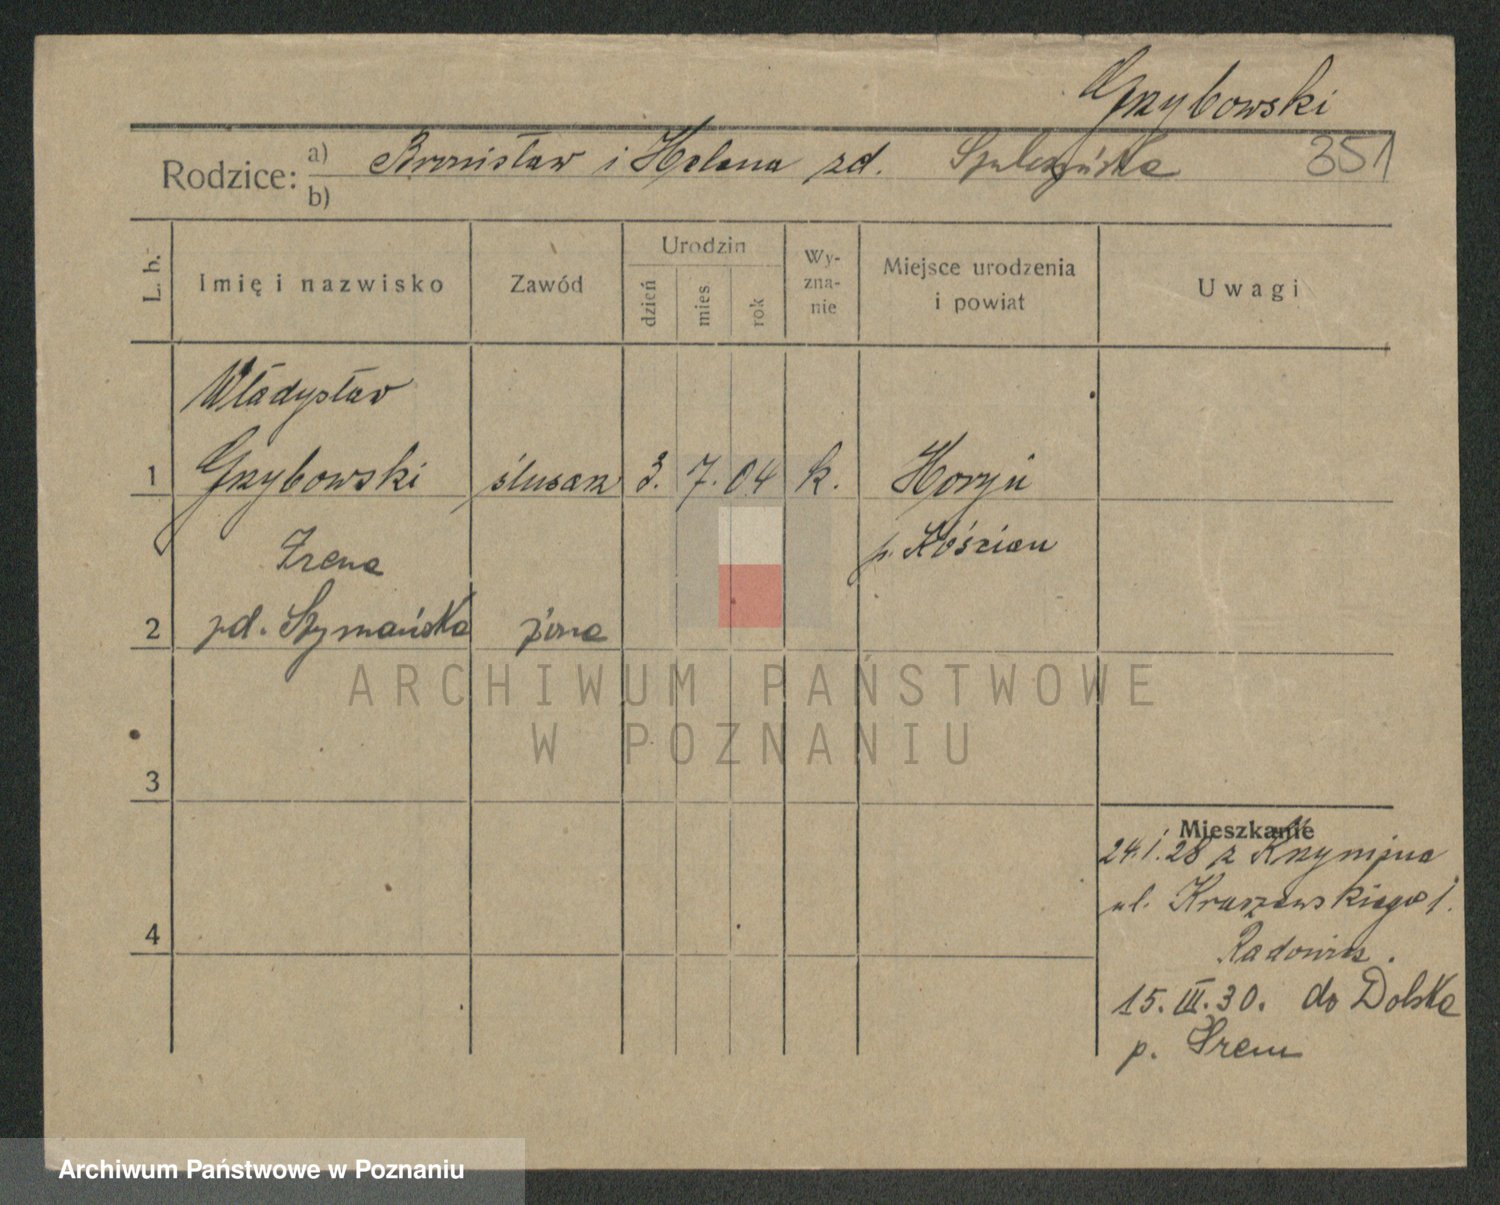 Grzybowski
Rodzice: a) Bronisław i Helena zd. Szulczyńska 351
b)
L. b.
Imię i nazwisko
Zawód
Urodzin
dzień
mies
rok
Wy-
zna-
nie
Miejsce urodzenia
i powiat
Uwagi
Władysław
1 Grzybowski ślusarz 3. 7. 04 k. Horyń
p. Kościan
Irena
2 zd. Szymańska żona
3
Mieszkanie
24.1.28 z
ul. Kraszewskiego 1.
4
15.III.30. do Dolska
p. Śrem
ARCHIWUM PAŃSTWOWE
W POZNANIU
Archiwum Państwowe w Poznaniu